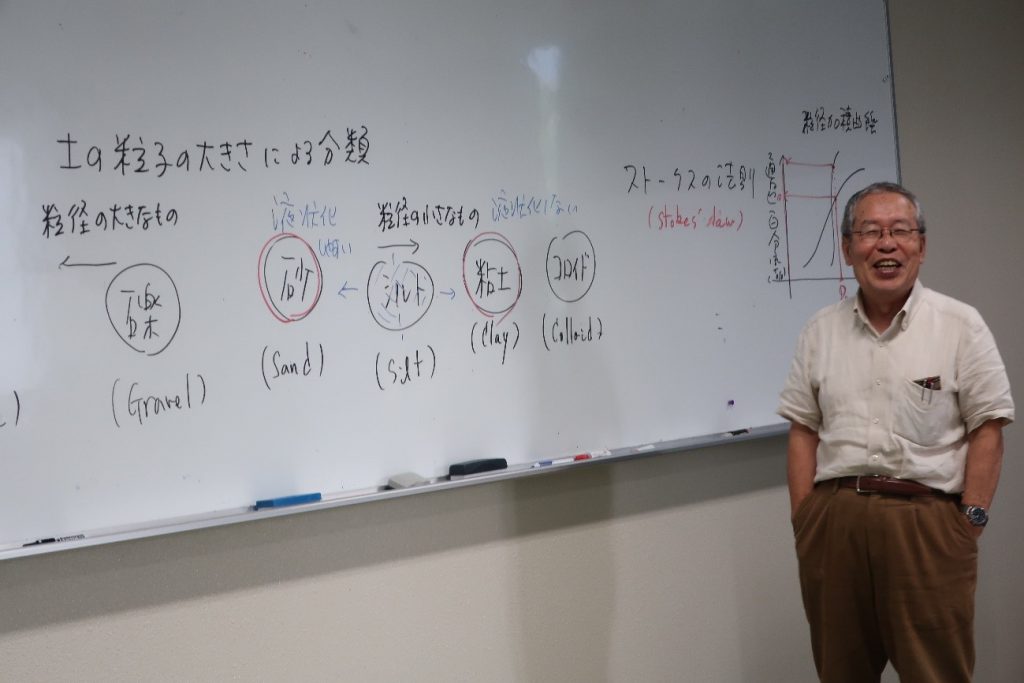 土の粒子の大きさによる分類
粒径の大きなもの
液状化
し易い
粒径の小さなもの
液状化しない
礫
砂
シルト
粘土
コロイド
(Gravel)
(Sand)
(Silt)
(Clay)
(Colloid)
ストークスの法則
(stokes' law)
粒径加積曲線
通過百分率
D